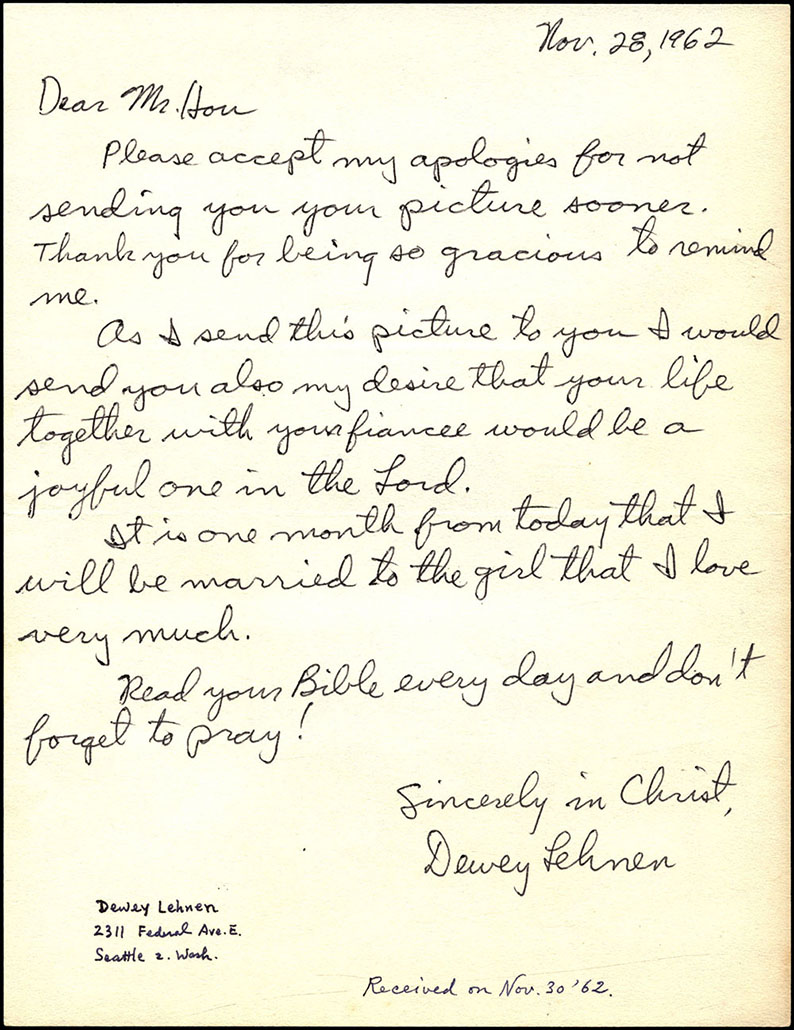 Nov. 28, 1962
Dear Mr. Hou
Please accept my apologies for not
sending you your picture sooner.
Thank you for being so gracious to remind
me.
As I send this picture to you I would
send you also my desire that your life
together with your fiancee would be a
joyful one in the Lord.
It is one month from today that I
will be married to the girl that I love
very much.
Read your Bible every day and don't
forget to pray!
Sincerely in Christ,
Dewey Lehnen
Dewey Lehnen
2311 Federal Ave. E.
Seattle 2. Wash.
Received on Nov. 30 '62.